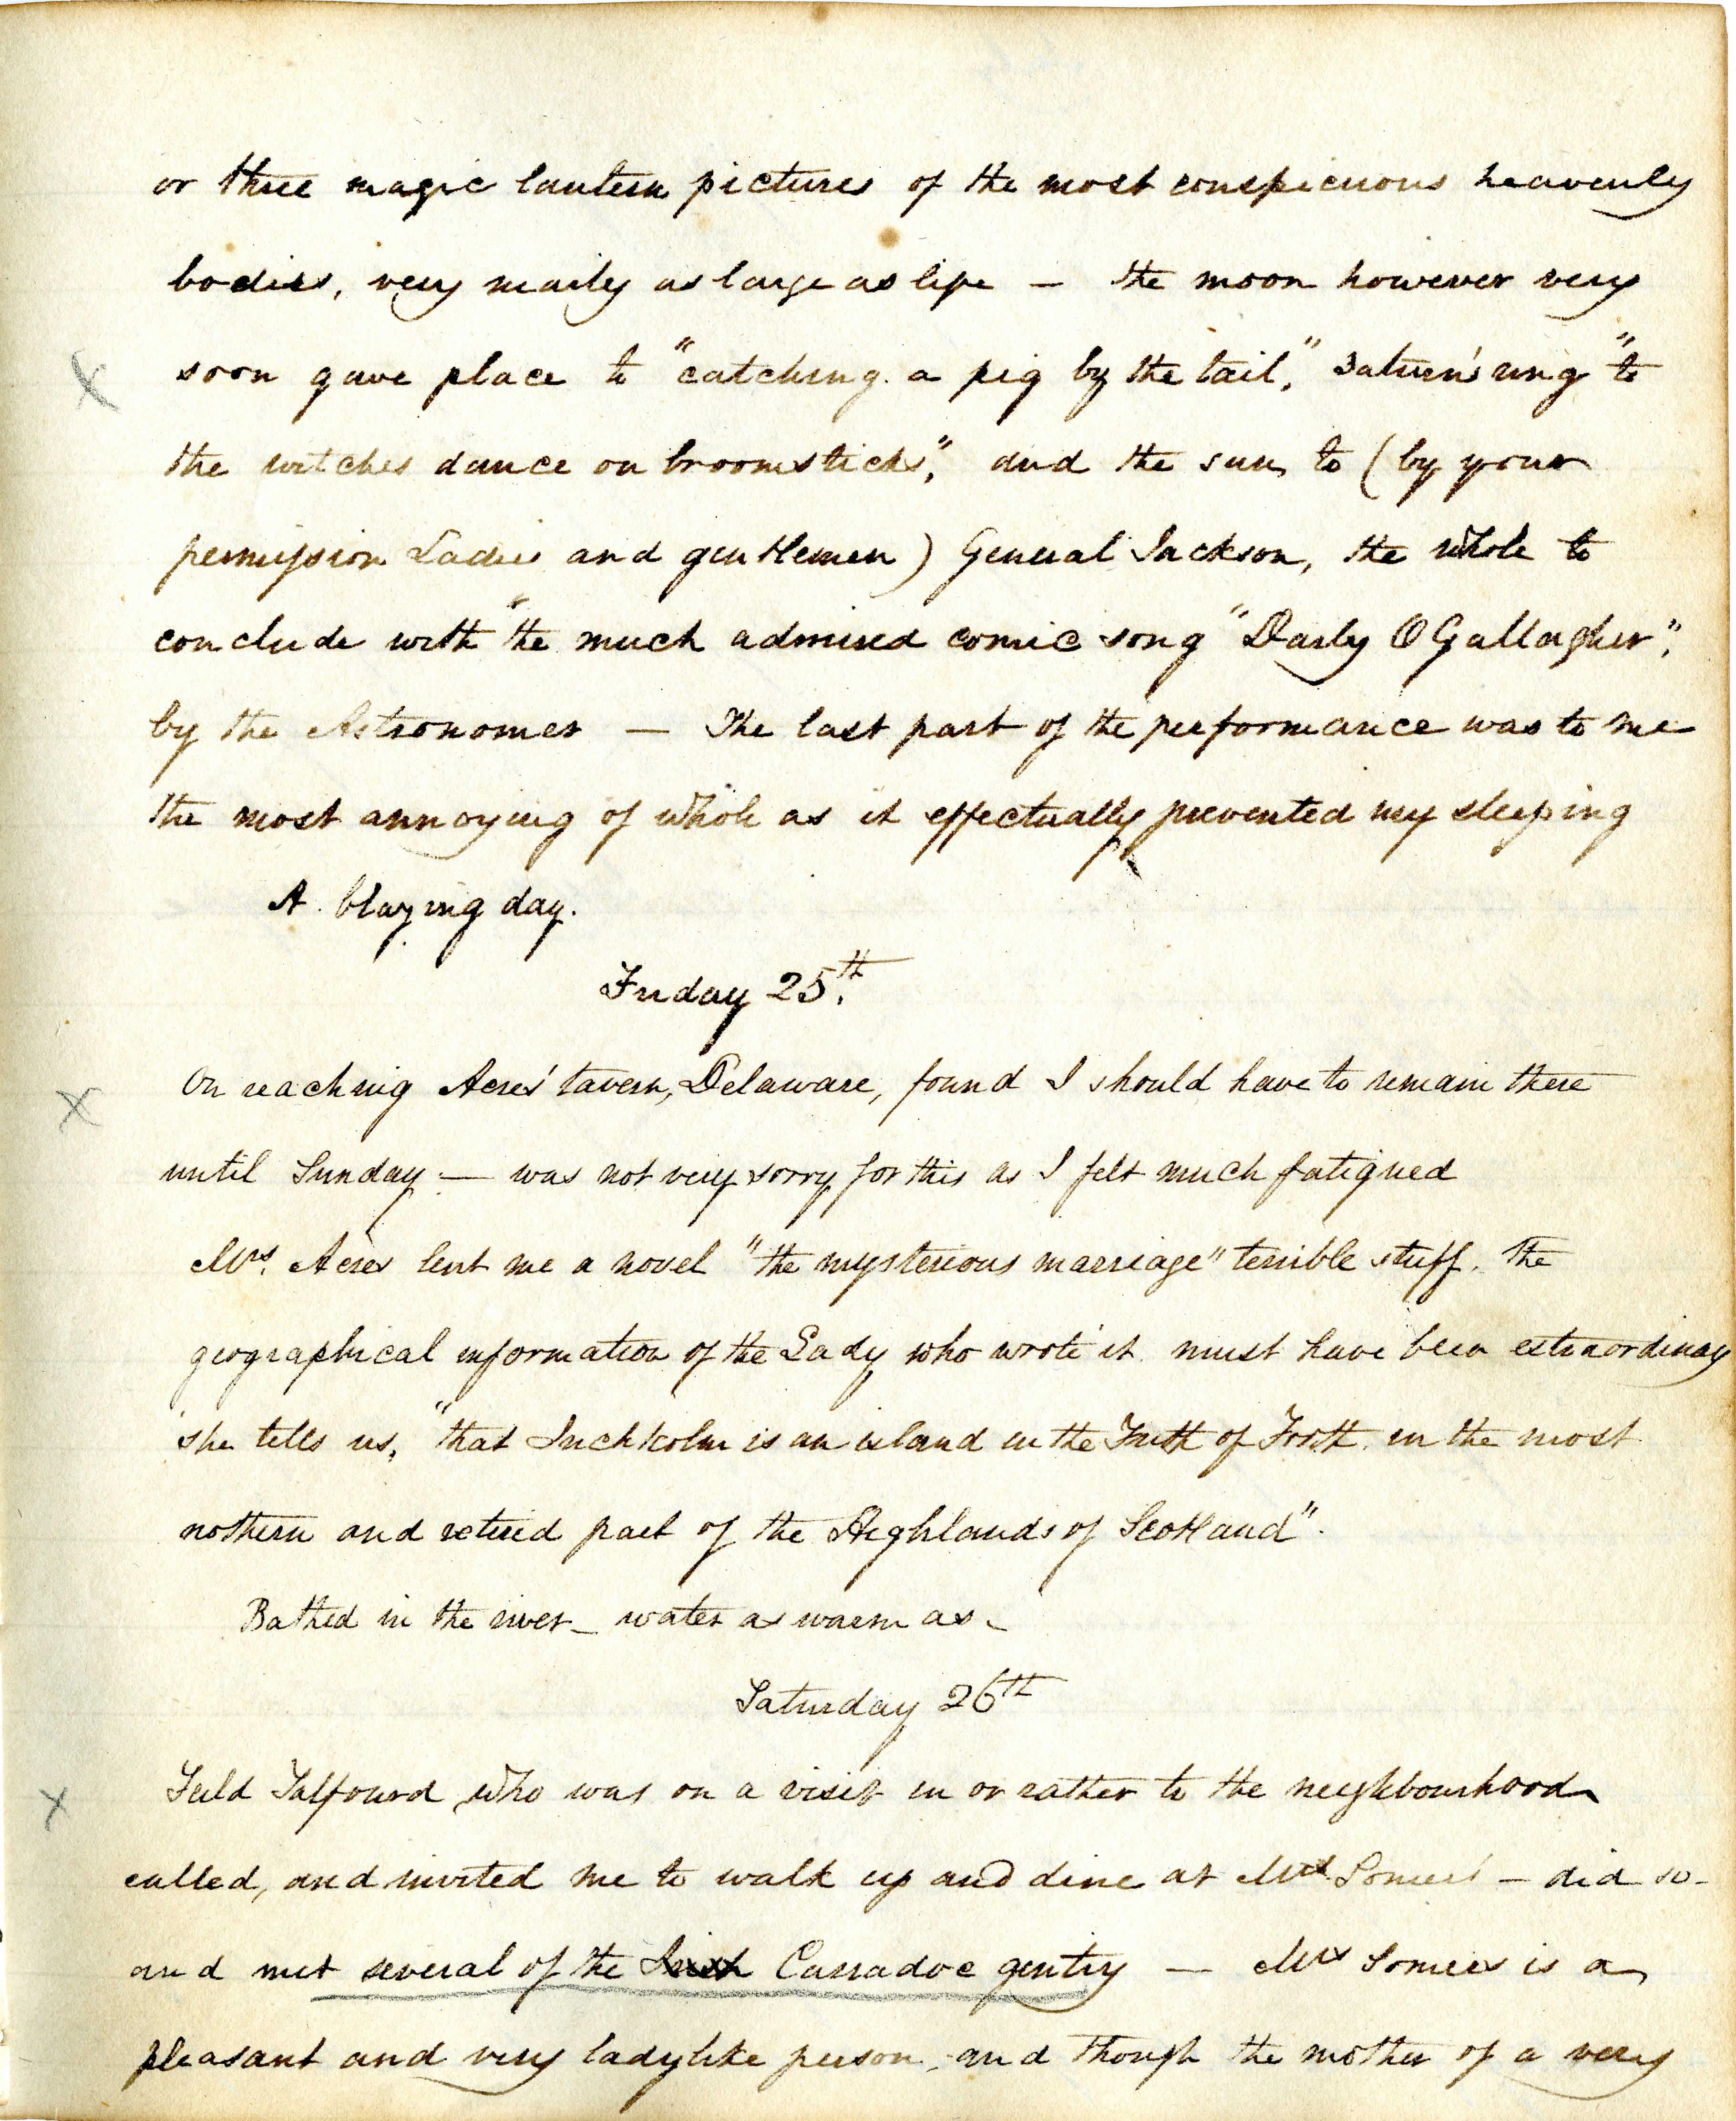 or three magic lantern pictures of the most conspicuous heavenly
bodies, very nearly as large as life – the moon however very
soon gave place to "catching a pig by the tail," Saturn's ring "to
the witches dance on broomsticks," and the sun to (by your
permission Ladies and gentlemen) General Jackson, the whole to
conclude with "the much admired comic song "Darly O Gallagher",
by the Astronomer — The last part of the performance was to me
the most annoying of whole as it effectually prevented my sleeping
A blazing day.
Friday 25th.
On reaching Acres' tavern, Delaware, found I should have to remain there
until Sunday — was not very sorry for this as I felt much fatigued
Mrs. Acres lent me a novel "the mysterious marriage" terrible stuff. The
geographical information of the Lady who wrote it must have been extraordinary
she tells us, "that Inchkolm is an island in the Frith of Forth in the most
nothern and retired part of the Highlands of Scotland".
Bathed in the river – water as warm as –
Saturday 26th
Feild Talfourd who was on a visit in or rather to the neighbourhood
called, and invited me to walk up and dine at Mrs Somers' – did so –
and met several of the Carradoc gentry — Mrs Somers is a
pleasant and very ladylike person, and though the mother of a very